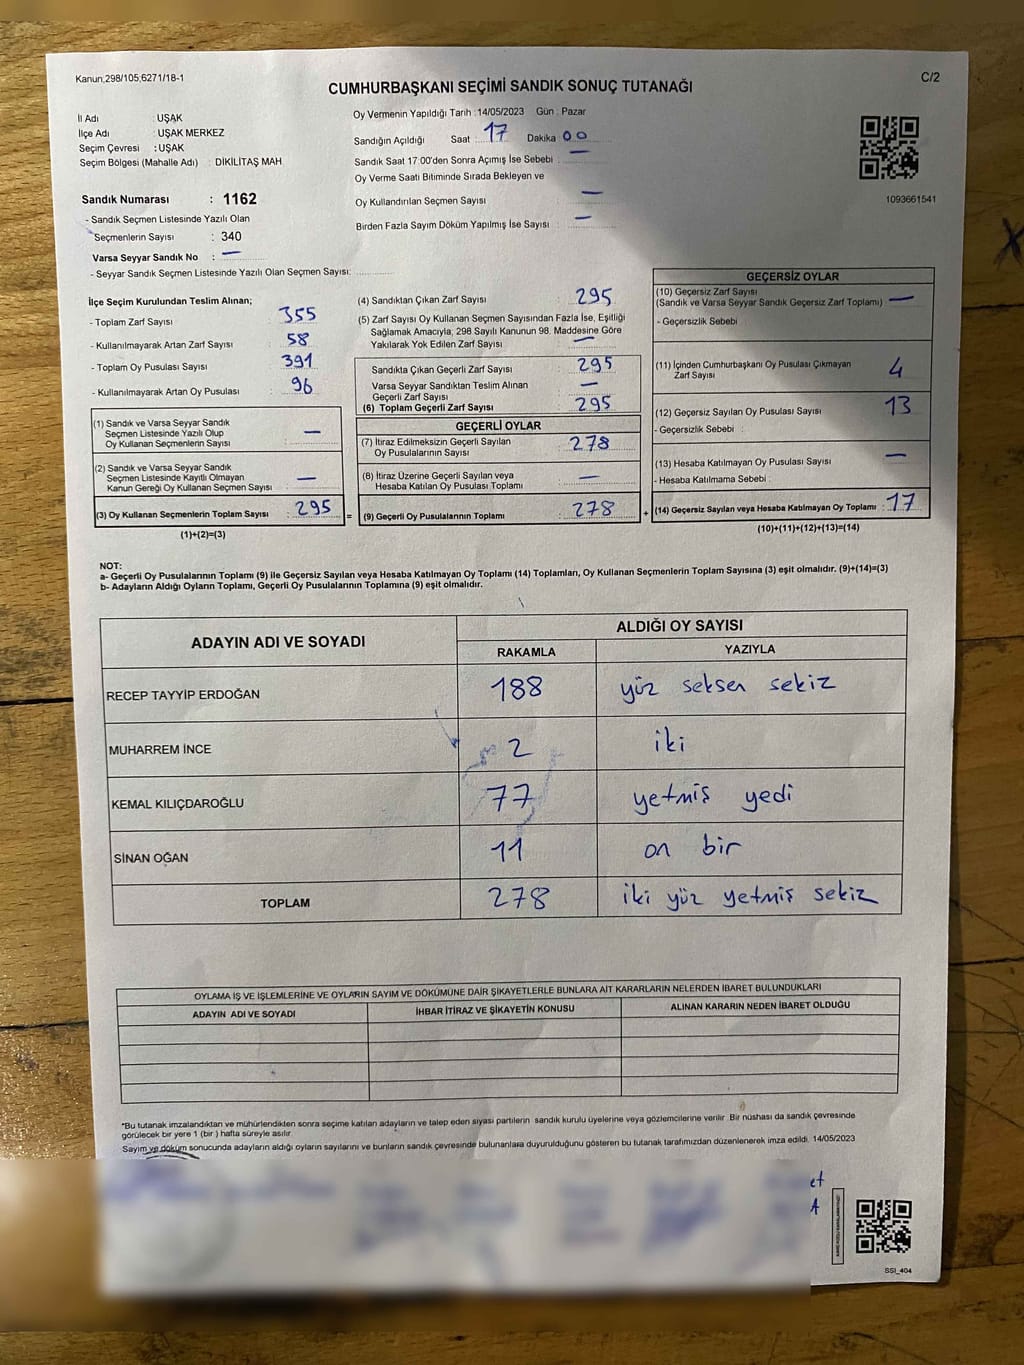 Kanun,298/105,6271/18-1
C/2
CUMHURBAŞKANI SEÇİMİ SANDIK SONUÇ TUTANAĞI
İl Adı : UŞAK
İlçe Adı : UŞAK MERKEZ
Seçim Çevresi : UŞAK
Seçim Bölgesi (Mahalle Adı) : DİKİLİTAŞ MAH
Oy Vermenin Yapıldığı Tarih :14/05/2023 Gün : Pazar
Sandığın Açıldığı Saat : 17 Dakika 00
Sandık Saat 17:00'den Sonra Açımış İse Sebebi : —
Oy Verme Saati Bitiminde Sırada Bekleyen ve
Oy Kullandırılan Seçmen Sayısı : —
Birden Fazla Sayım Döküm Yapılmış İse Sayısı : —
1093661541
Sandık Numarası : 1162
- Sandık Seçmen Listesinde Yazılı Olan
Seçmenlerin Sayısı : 340
Varsa Seyyar Sandık No : —
- Seyyar Sandık Seçmen Listesinde Yazılı Olan Seçmen Sayısı:
İlçe Seçim Kurulundan Teslim Alınan;
- Toplam Zarf Sayısı : 355
- Kullanılmayarak Artan Zarf Sayısı : 58
- Toplam Oy Pusulası Sayısı : 391
- Kullanılmayarak Artan Oy Pusulası : 96
(1) Sandık ve Varsa Seyyar Sandık
Seçmen Listesinde Yazılı Olup
Oy Kullanan Seçmenlerin Sayısı : —
(2) Sandık ve Varsa Seyyar Sandık
Seçmen Listesinde Kayıtlı Olmayan
Kanun Gereği Oy Kullanan Seçmen Sayısı : —
(3) Oy Kullanan Seçmenlerin Toplam Sayısı : 295
(1)+(2)=(3)
(4) Sandıktan Çıkan Zarf Sayısı : 295
(5) Zarf Sayısı Oy Kullanan Seçmen Sayısından Fazla İse, Eşitliği
Sağlamak Amacıyla, 298 Sayılı Kanunun 98. Maddesine Göre
Yakılarak Yok Edilen Zarf Sayısı : —
Sandıkta Çıkan Geçerli Zarf Sayısı : 295
Varsa Seyyar Sandıktan Teslim Alınan
Geçerli Zarf Sayısı : —
(6) Toplam Geçerli Zarf Sayısı : 295
GEÇERLİ OYLAR
(7) İtiraz Edilmeksizin Geçerli Sayılan
Oy Pusulalarının Sayısı : 278
(8) İtiraz Üzerine Geçerli Sayılan veya
Hesaba Katılan Oy Pusulası Toplamı : —
= (9) Geçerli Oy Pusulalarının Toplamı : 278
GEÇERSİZ OYLAR
(10) Geçersiz Zarf Sayısı
(Sandık ve Varsa Seyyar Sandık Geçersiz Zarf Toplamı) : —
- Geçersizlik Sebebi
(11) İçinden Cumhurbaşkanı Oy Pusulası Çıkmayan
Zarf Sayısı : 4
(12) Geçersiz Sayılan Oy Pusulası Sayısı : 13
- Geçersizlik Sebebi :
(13) Hesaba Katılmayan Oy Pusulası Sayısı : —
- Hesaba Katılmama Sebebi :
+ (14) Geçersiz Sayılan veya Hesaba Katılmayan Oy Toplamı : 17
(10)+(11)+(12)+(13)=(14)
NOT:
a- Geçerli Oy Pusulalarının Toplamı (9) ile Geçersiz Sayılan veya Hesaba Katılmayan Oy Toplamı (14) Toplamları, Oy Kullanan Seçmenlerin Toplam Sayısına (3) eşit olmalıdır. (9)+(14)=(3)
b- Adayların Aldığı Oyların Toplamı, Geçerli Oy Pusulalarının Toplamına (9) eşit olmalıdır.
ADAYIN ADI VE SOYADI
ALDIĞI OY SAYISI
RAKAMLA YAZIYLA
RECEP TAYYİP ERDOĞAN 188 yüz seksen sekiz
MUHARREM İNCE 2 iki
KEMAL KILIÇDAROĞLU 77 yetmiş yedi
SİNAN OĞAN 11 on bir
TOPLAM 278 iki yüz yetmiş sekiz
OYLAMA İŞ VE İŞLEMLERİNE VE OYLARIN SAYIM VE DÖKÜMÜNE DAİR ŞİKAYETLERLE BUNLARA AİT KARARLARIN NELERDEN İBARET BULUNDUKLARI
ADAYIN ADI VE SOYADI İHBAR İTİRAZ VE ŞİKAYETİN KONUSU ALINAN KARARIN NEDEN İBARET OLDUĞU
*Bu tutanak imzalandıktan ve mühürlendikten sonra seçime katılan adayların ve talep eden siyasi partilerin sandık kurulu üyelerine veya gözlemcilerine verilir. Bir nüshası da sandık çevresinde
görülecek bir yere 1 (bir) hafta süreyle asılır.
Sayım ve döküm sonucunda adayların aldığı oyların sayılarını ve bunların sandık çevresinde bulunanlara duyurulduğunu gösteren bu tutanak tarafımızdan düzenlenerek imza edildi. 14/05/2023
et
A
SSI_404